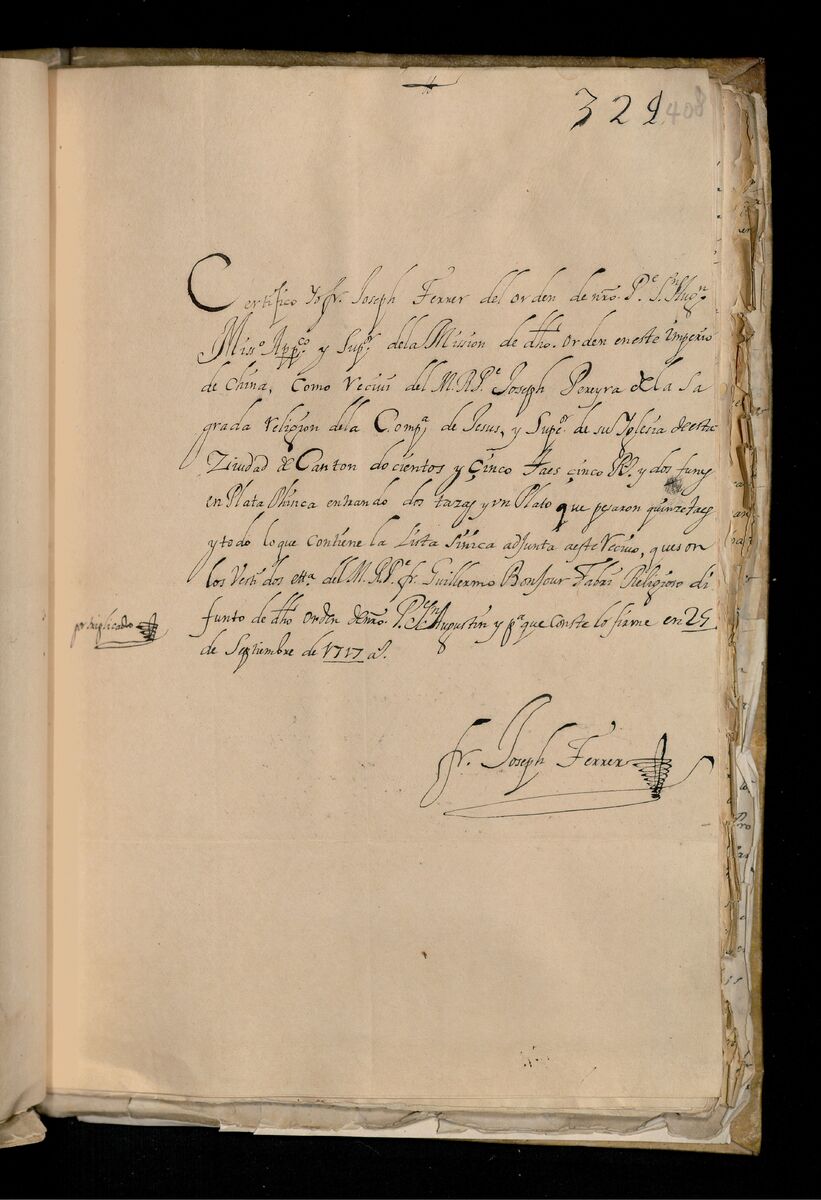 322 408
Certifico Yo fr. Joseph Ferrer del orden de nro. Pe. S.n Aug.n
Miss.o App.co y Sup.or dela Mission de dho. orden eneste imperio
de China, como recivi del M.R.Pe. Joseph Pereyra de la Sa
grada religion dela Comp.a de Jesus, y Sup.or de su Yglesia de esta
Ziudad de Canton docientos y çinco taes çinco y dos
en Plata Chinica entrando dos tazas y vn Plato que pesaron quinze taes
y todo lo que contiene la Lista Sinica adjunta a este recivo, que son
los vestidos etta. del M.R.Pe. fr. Guillermo Bonjour Fabri Religioso di
funto de dho orden de nro. Pe. S.n Augustin y p.a que conste lo firme en 25
de Septiembre de 1717 a.s
por triplicado
fr. Joseph Ferrer